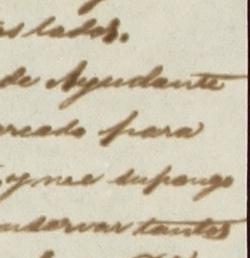 aslados.
de Ayudante
ercado para
, y me supongo
nservar tantos